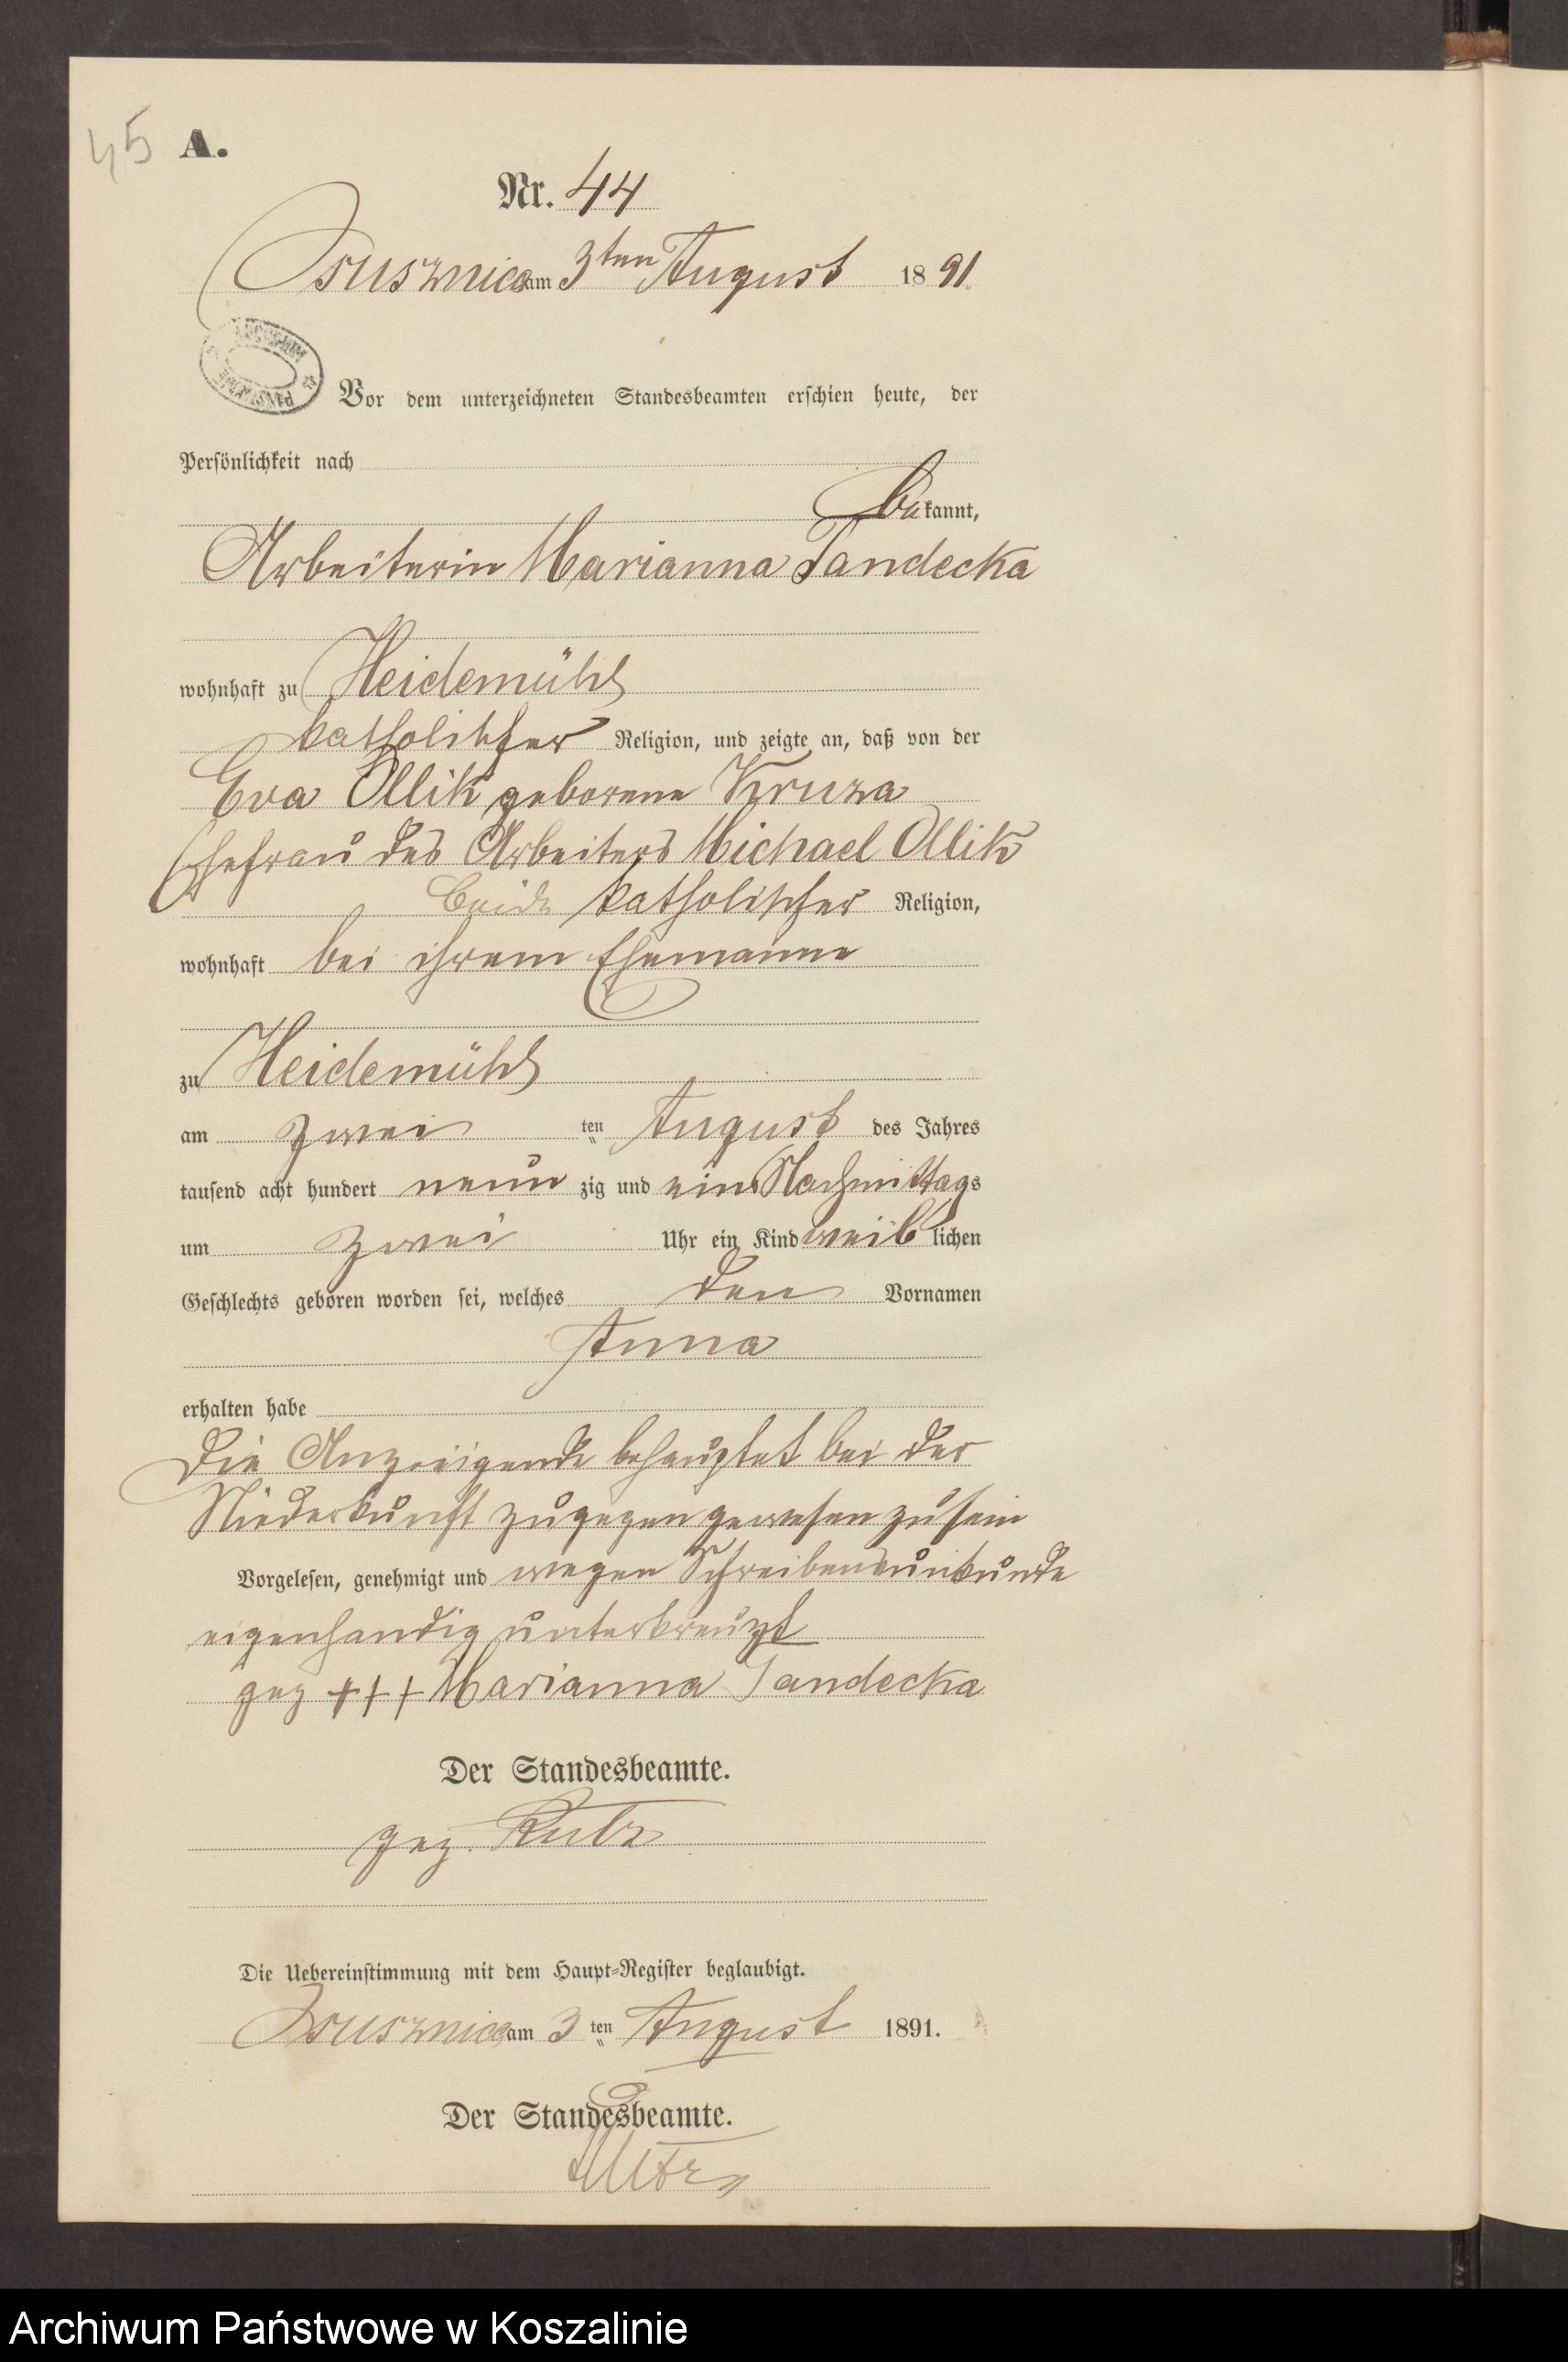 45 A.
Nr. 44
am 3ten August 1891
Vor dem unterzeichneten Standesbeamten erschien heute, der
Persönlichkeit nach
bekannt,
Arbeiterin Marianna Tandecka
wohnhaft zu Heidemühl
katholischer Religion, und zeigte an, daß von der
Eva Ollik geborene Kruza
Ehefrau des Arbeiters Michael Ollik
beide katholischer Religion,
wohnhaft bei ihrem Ehemanne
zu Heidemühl
am zwei ten August des Jahres
tausend acht hundert neun zig und eins Nachmittags
um zwei Uhr ein Kind weiblichen
Geschlechts geboren worden sei, welches den Vornamen
Anna
erhalten habe
Die Anzeigende behauptet bei der
Niederkunft zugegen gewesen zu sein
Vorgelesen, genehmigt und wegen Schreibensunkunde
eigenhandig unterkreuzt
gez +++ Marianna Tandecka
Der Standesbeamte.
gez.
Die Uebereinstimmung mit dem Haupt-Register beglaubigt.
am 3 ten August 1891.
Der Standesbeamte.
Archiwum Państwowe w Koszalinie